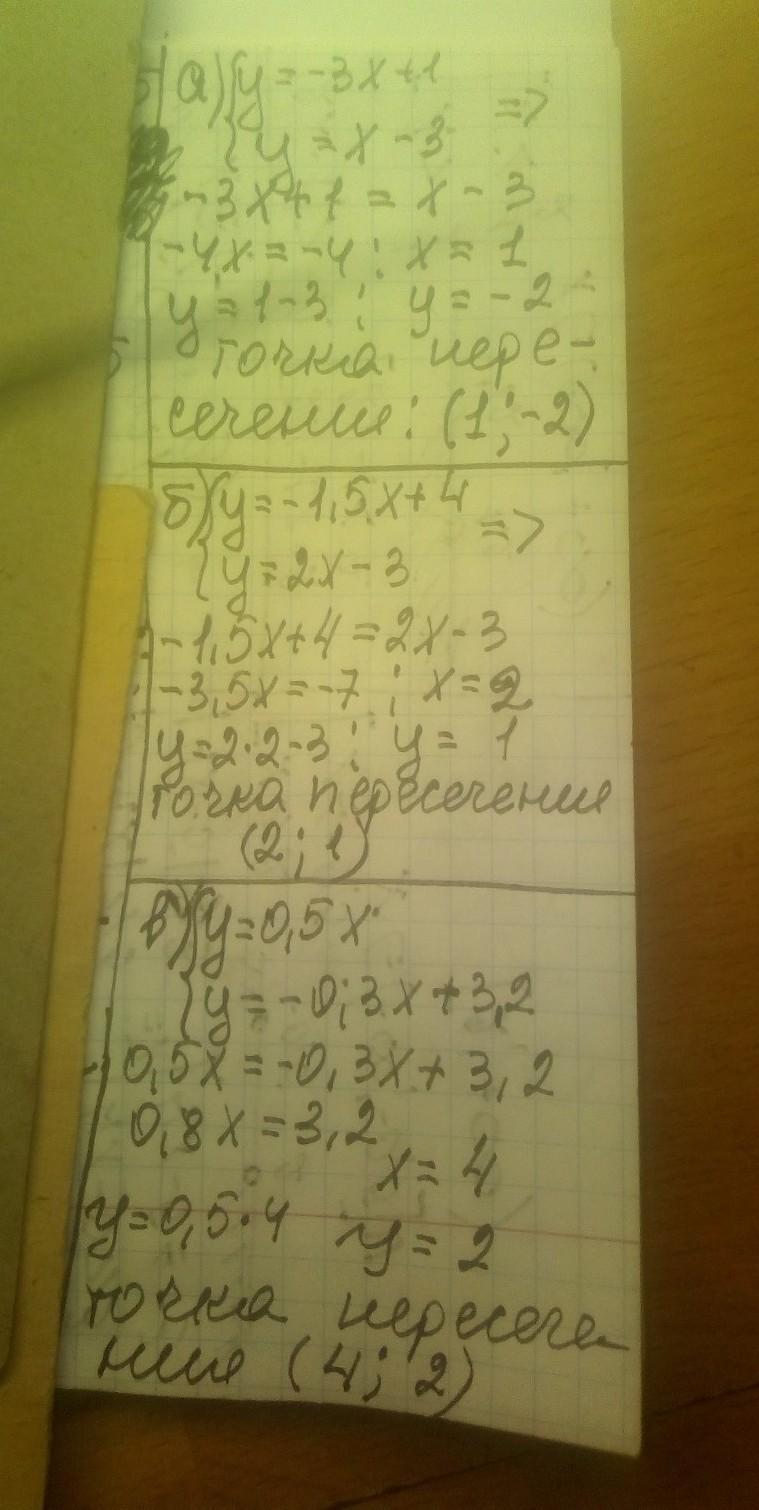 а) { y = -3x+1
{ y = x - 3 =>
-3x+1 = x - 3
-4x = -4 ; x = 1
y = 1-3 ; y = -2
точка пере-
сечения: (1; -2)
б) { y = -1,5x + 4
{ y = 2x - 3 =>
-1,5x+4 = 2x-3
-3,5x = -7 ; x = 2
y = 2·2-3 ; y = 1
точка пересечения
(2; 1)
в) { y = 0,5x
{ y = -0,3x + 3,2
0,5x = -0,3x + 3,2
0,8x = 3,2
x = 4
y = 0,5·4 y = 2
точка пересече-
ния (4; 2)